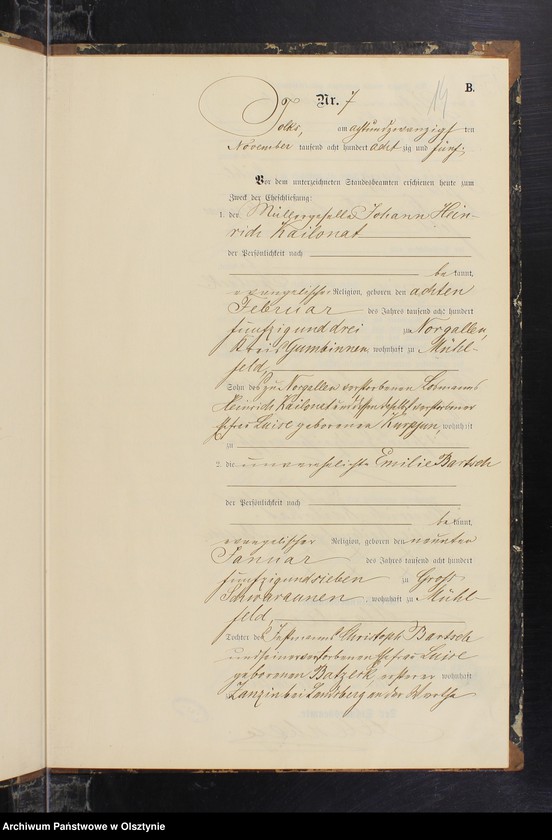 B.
14
Nr. 7
Tolks, am achtundzwanzigsten
November tausend acht hundert achtzig und fünf.
Vor dem unterzeichneten Standesbeamten erschienen heute zum
Zweck der Eheschließung:
1. der Müllergeselle Johann Hein-
rich Kailonat
der Persönlichkeit nach
bekannt,
evangelischer Religion, geboren den achten
Februar des Jahres tausend acht hundert
fünfzig und drei zu Norgallen,
Kreis Gumbinnen, wohnhaft zu Mühl-
feld,
Sohn des zu Norgallen verstorbenen Losmanns
Heinrich Kailonat und dessen verstorbener
Ehefrau Luise geborenen Kurpjun, wohnhaft
zu
2. die unverehelichte Emilie Bartsch
der Persönlichkeit nach
bekannt,
evangelischer Religion, geboren den neunten
Januar des Jahres tausend acht hundert
fünfzig und sieben zu Groß
Schwaraunen, wohnhaft zu Mühl-
feld,
Tochter des Instmanns Christoph Bartsch
und seiner verstorbenen Ehefrau Luise
geborenen Batzeck, ersterer wohnhaft
Zanzin bei Landsberg an der Warthe
Archiwum Państwowe w Olsztynie